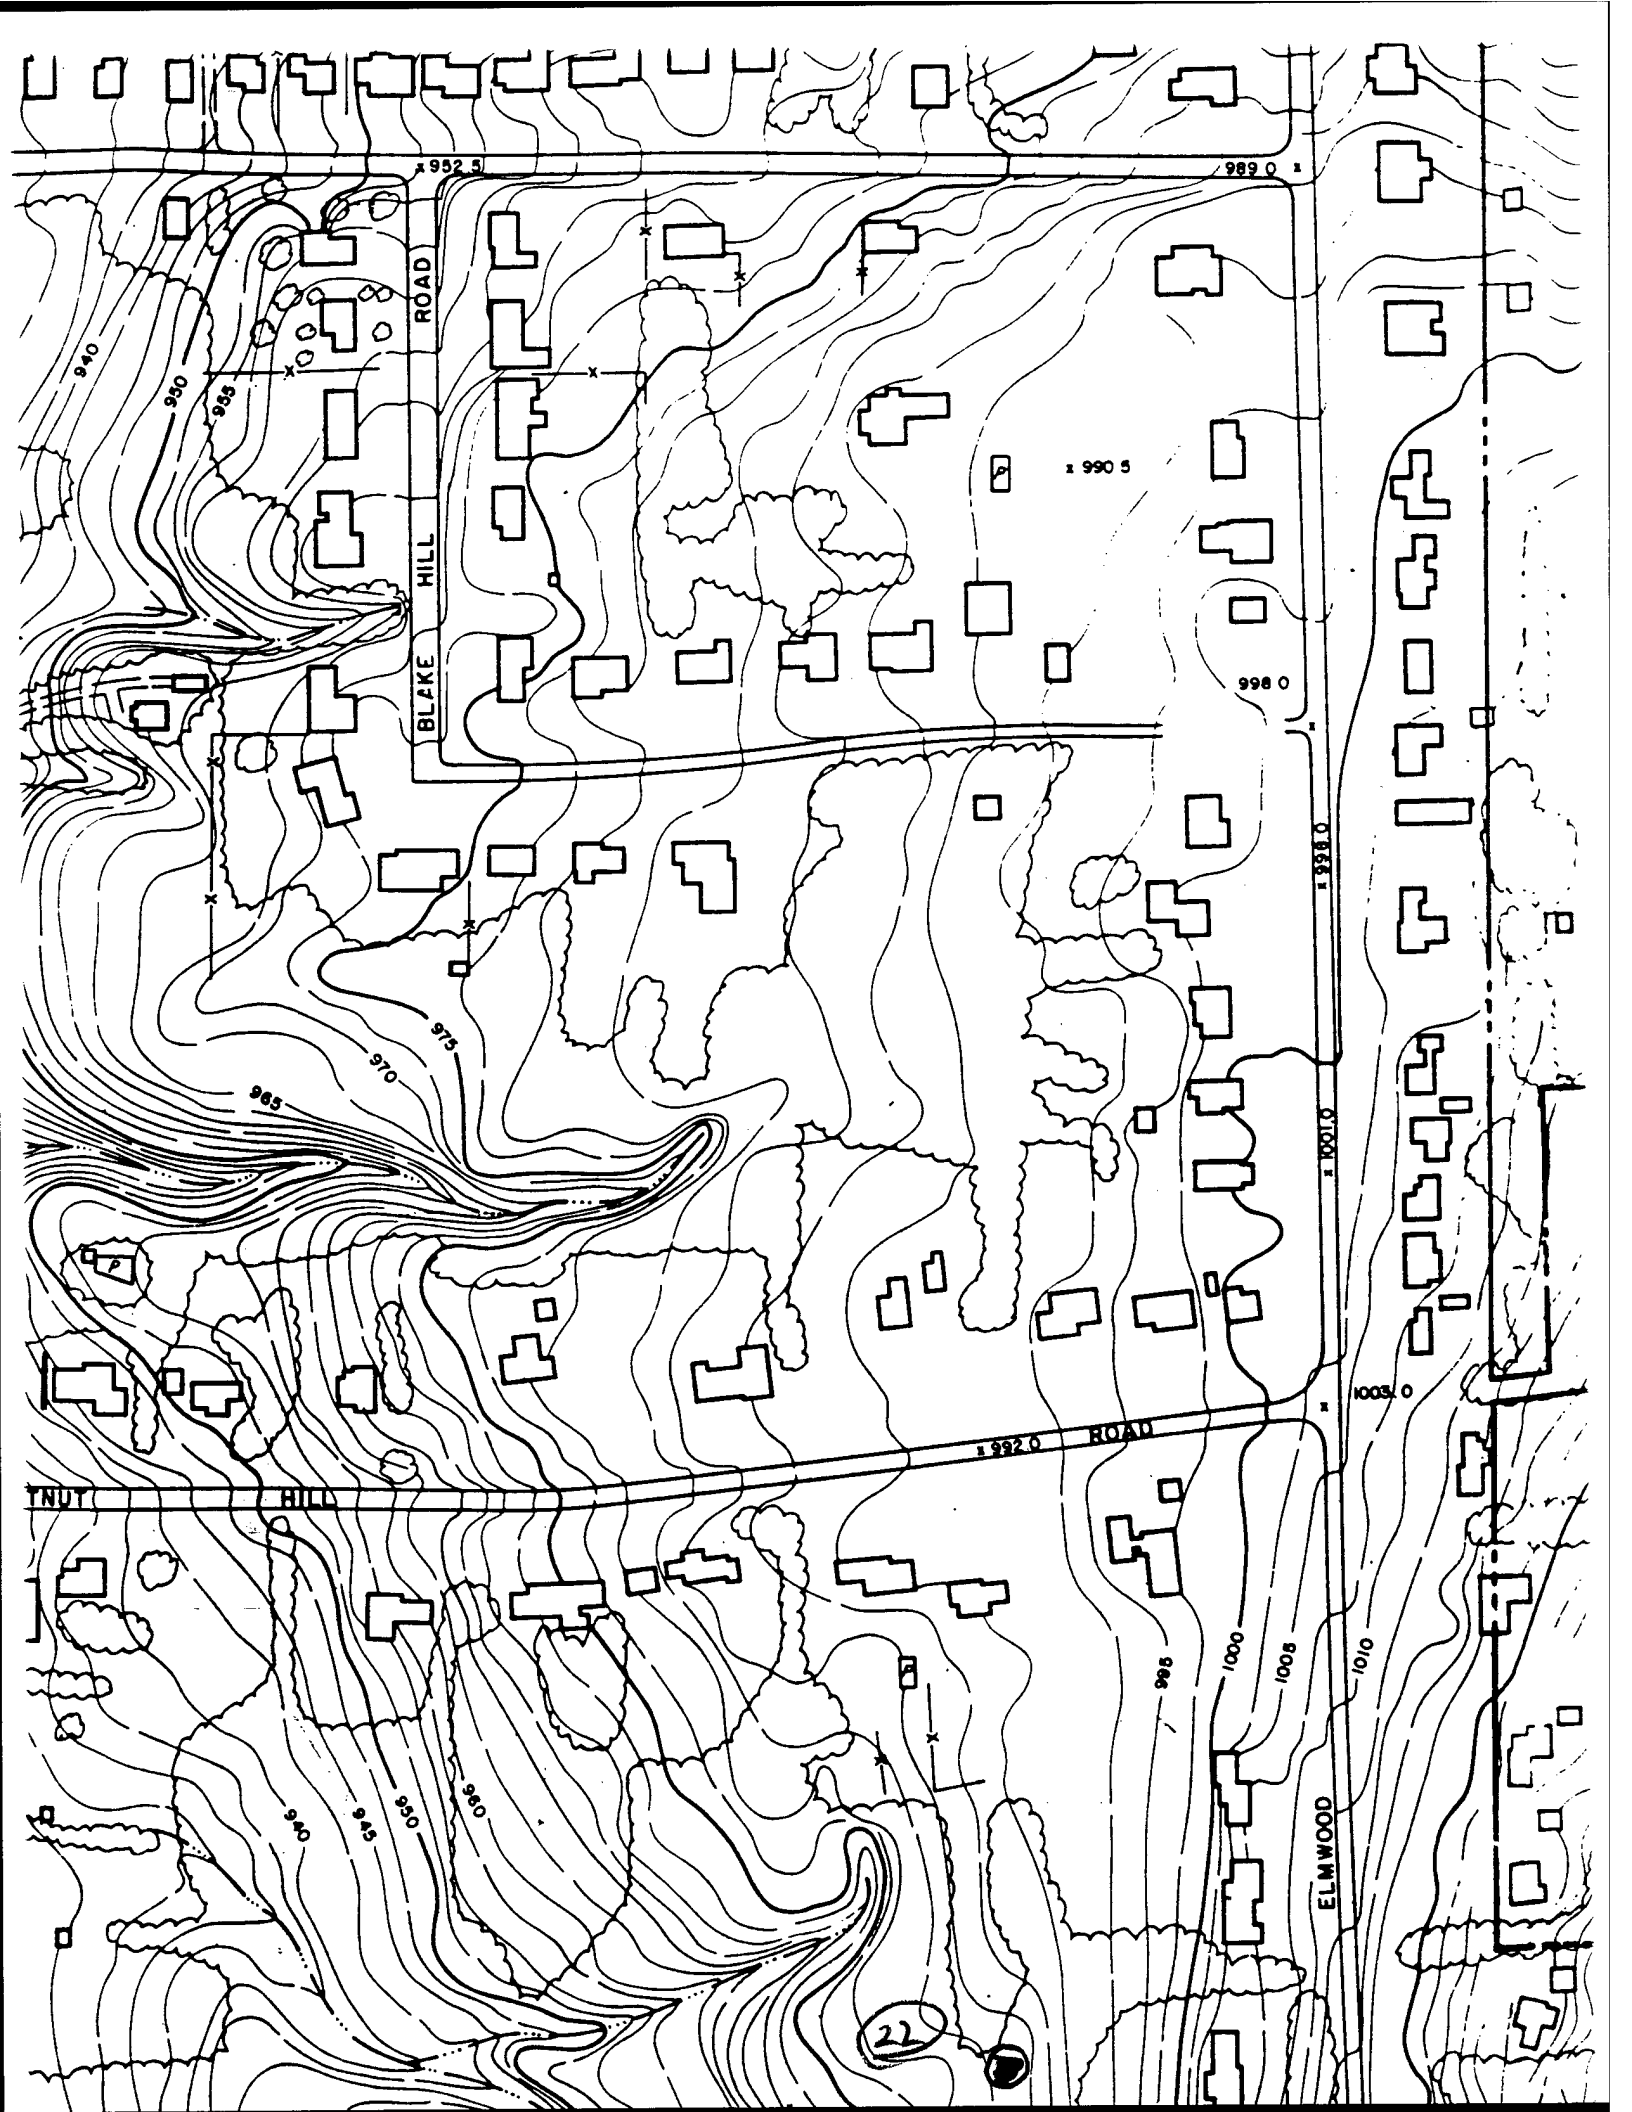 952.5
989.0
ROAD
940
950
955
P
990.5
HILL
BLAKE
998.0
998.0
975
970
965
1001.0
P
1003.0
ROAD
992.0
TNUT HILL
P
995
1000
1005
1010
940
945
950
960
ELMWOOD
22